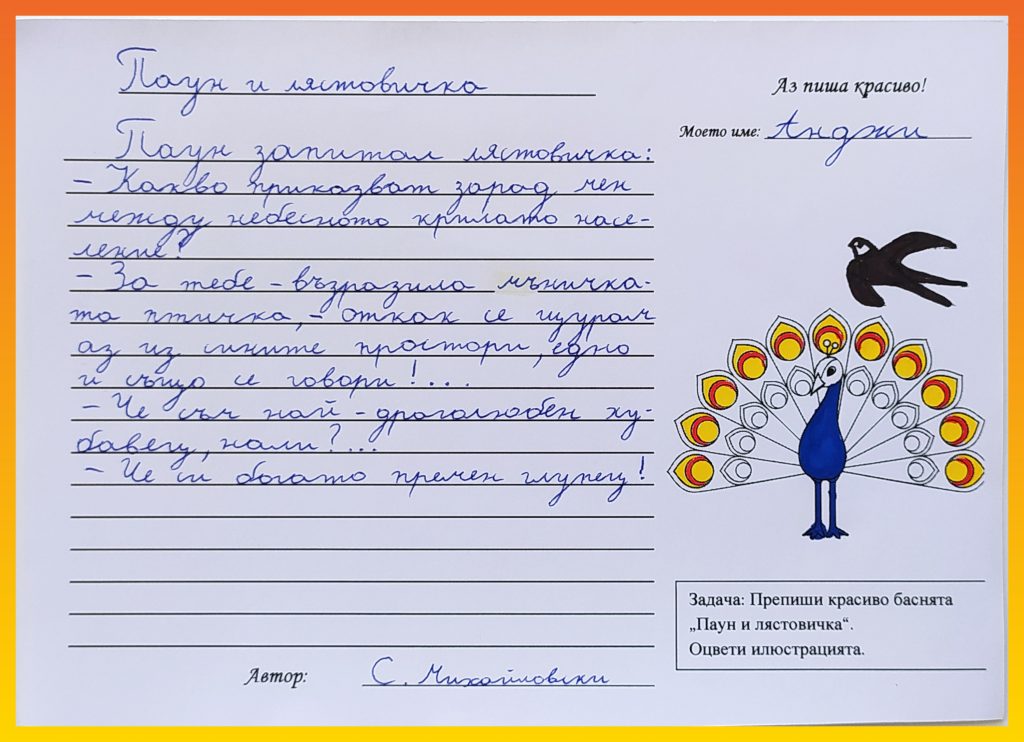 Паун и лястовичка
Аз пиша красиво!
Моето име: Анджи
Паун запитал лястовичка:
– Какво приказват зарад мен
между небесното крилато насе-
ление?
– За тебе – възразила мъничка-
та птичка, – откак се щурам
аз из сините простори, едно
и също се говори!...
– Че съм най-драголюбен ху-
бавец, нали?...
– Че си богато премен глупец!
Автор: С. Михайловски
Задача: Препиши красиво баснята
„Паун и лястовичка“.
Оцвети илюстрацията.